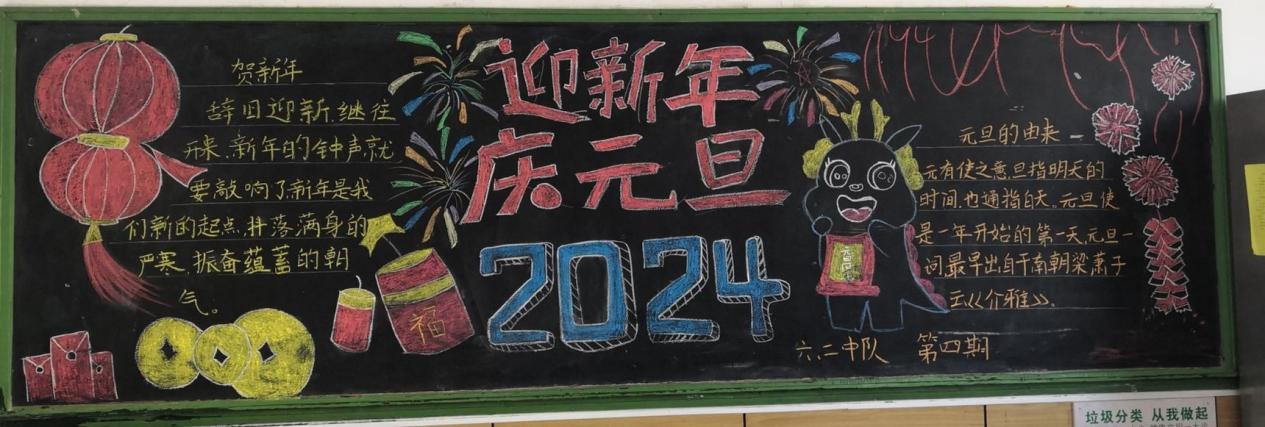 贺新年
辞旧迎新,继往
开来,新年的钟声就
要敲响了.新年是我
们新的起点,抖落满身的
严寒,振奋蕴蓄的朝
气。
福
迎新年
庆元旦
2024
元旦的由来
元有使之意,旦指明天的
时间,也通指白天,元旦使
是一年开始的第一天.元旦一
词最早出自于南朝梁萧子
云《介雅》。
六、二中队 第四期
垃圾分类 从我做起